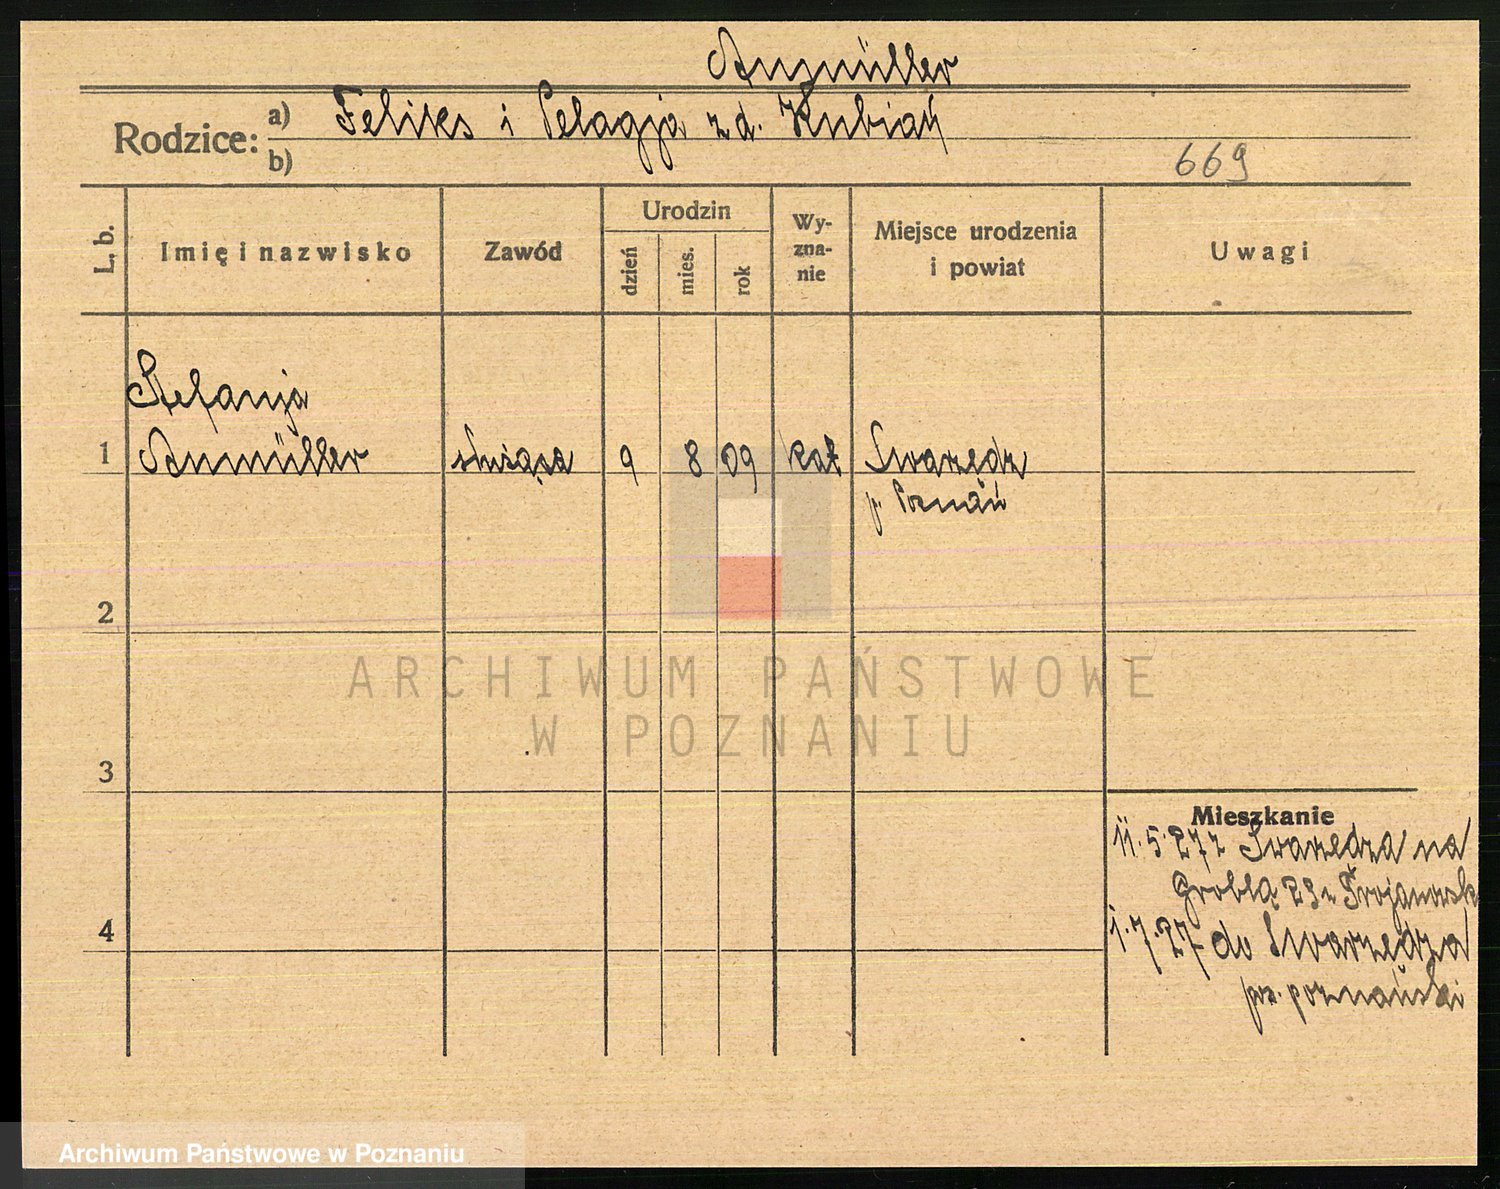 Anmüller
Rodzice: a) Feliks i Pelagja z d. Kubiak
b)
669
L. b.
Imię i nazwisko
Zawód
Urodzin
dzień
mies.
rok
Wy-
zna-
nie
Miejsce urodzenia
i powiat
Uwagi
Stefanja
1 Anmüller służąca 9 8 09 kat Swarzędz
p. Poznań
2
ARCHIWUM PAŃSTWOWE
W POZNANIU
3
Mieszkanie
11.5.27 z Swarzędza na
Groblą 23 u Trojanowsk
4
1.7.27 do Swarzędza
pow. poznański
Archiwum Państwowe w Poznaniu